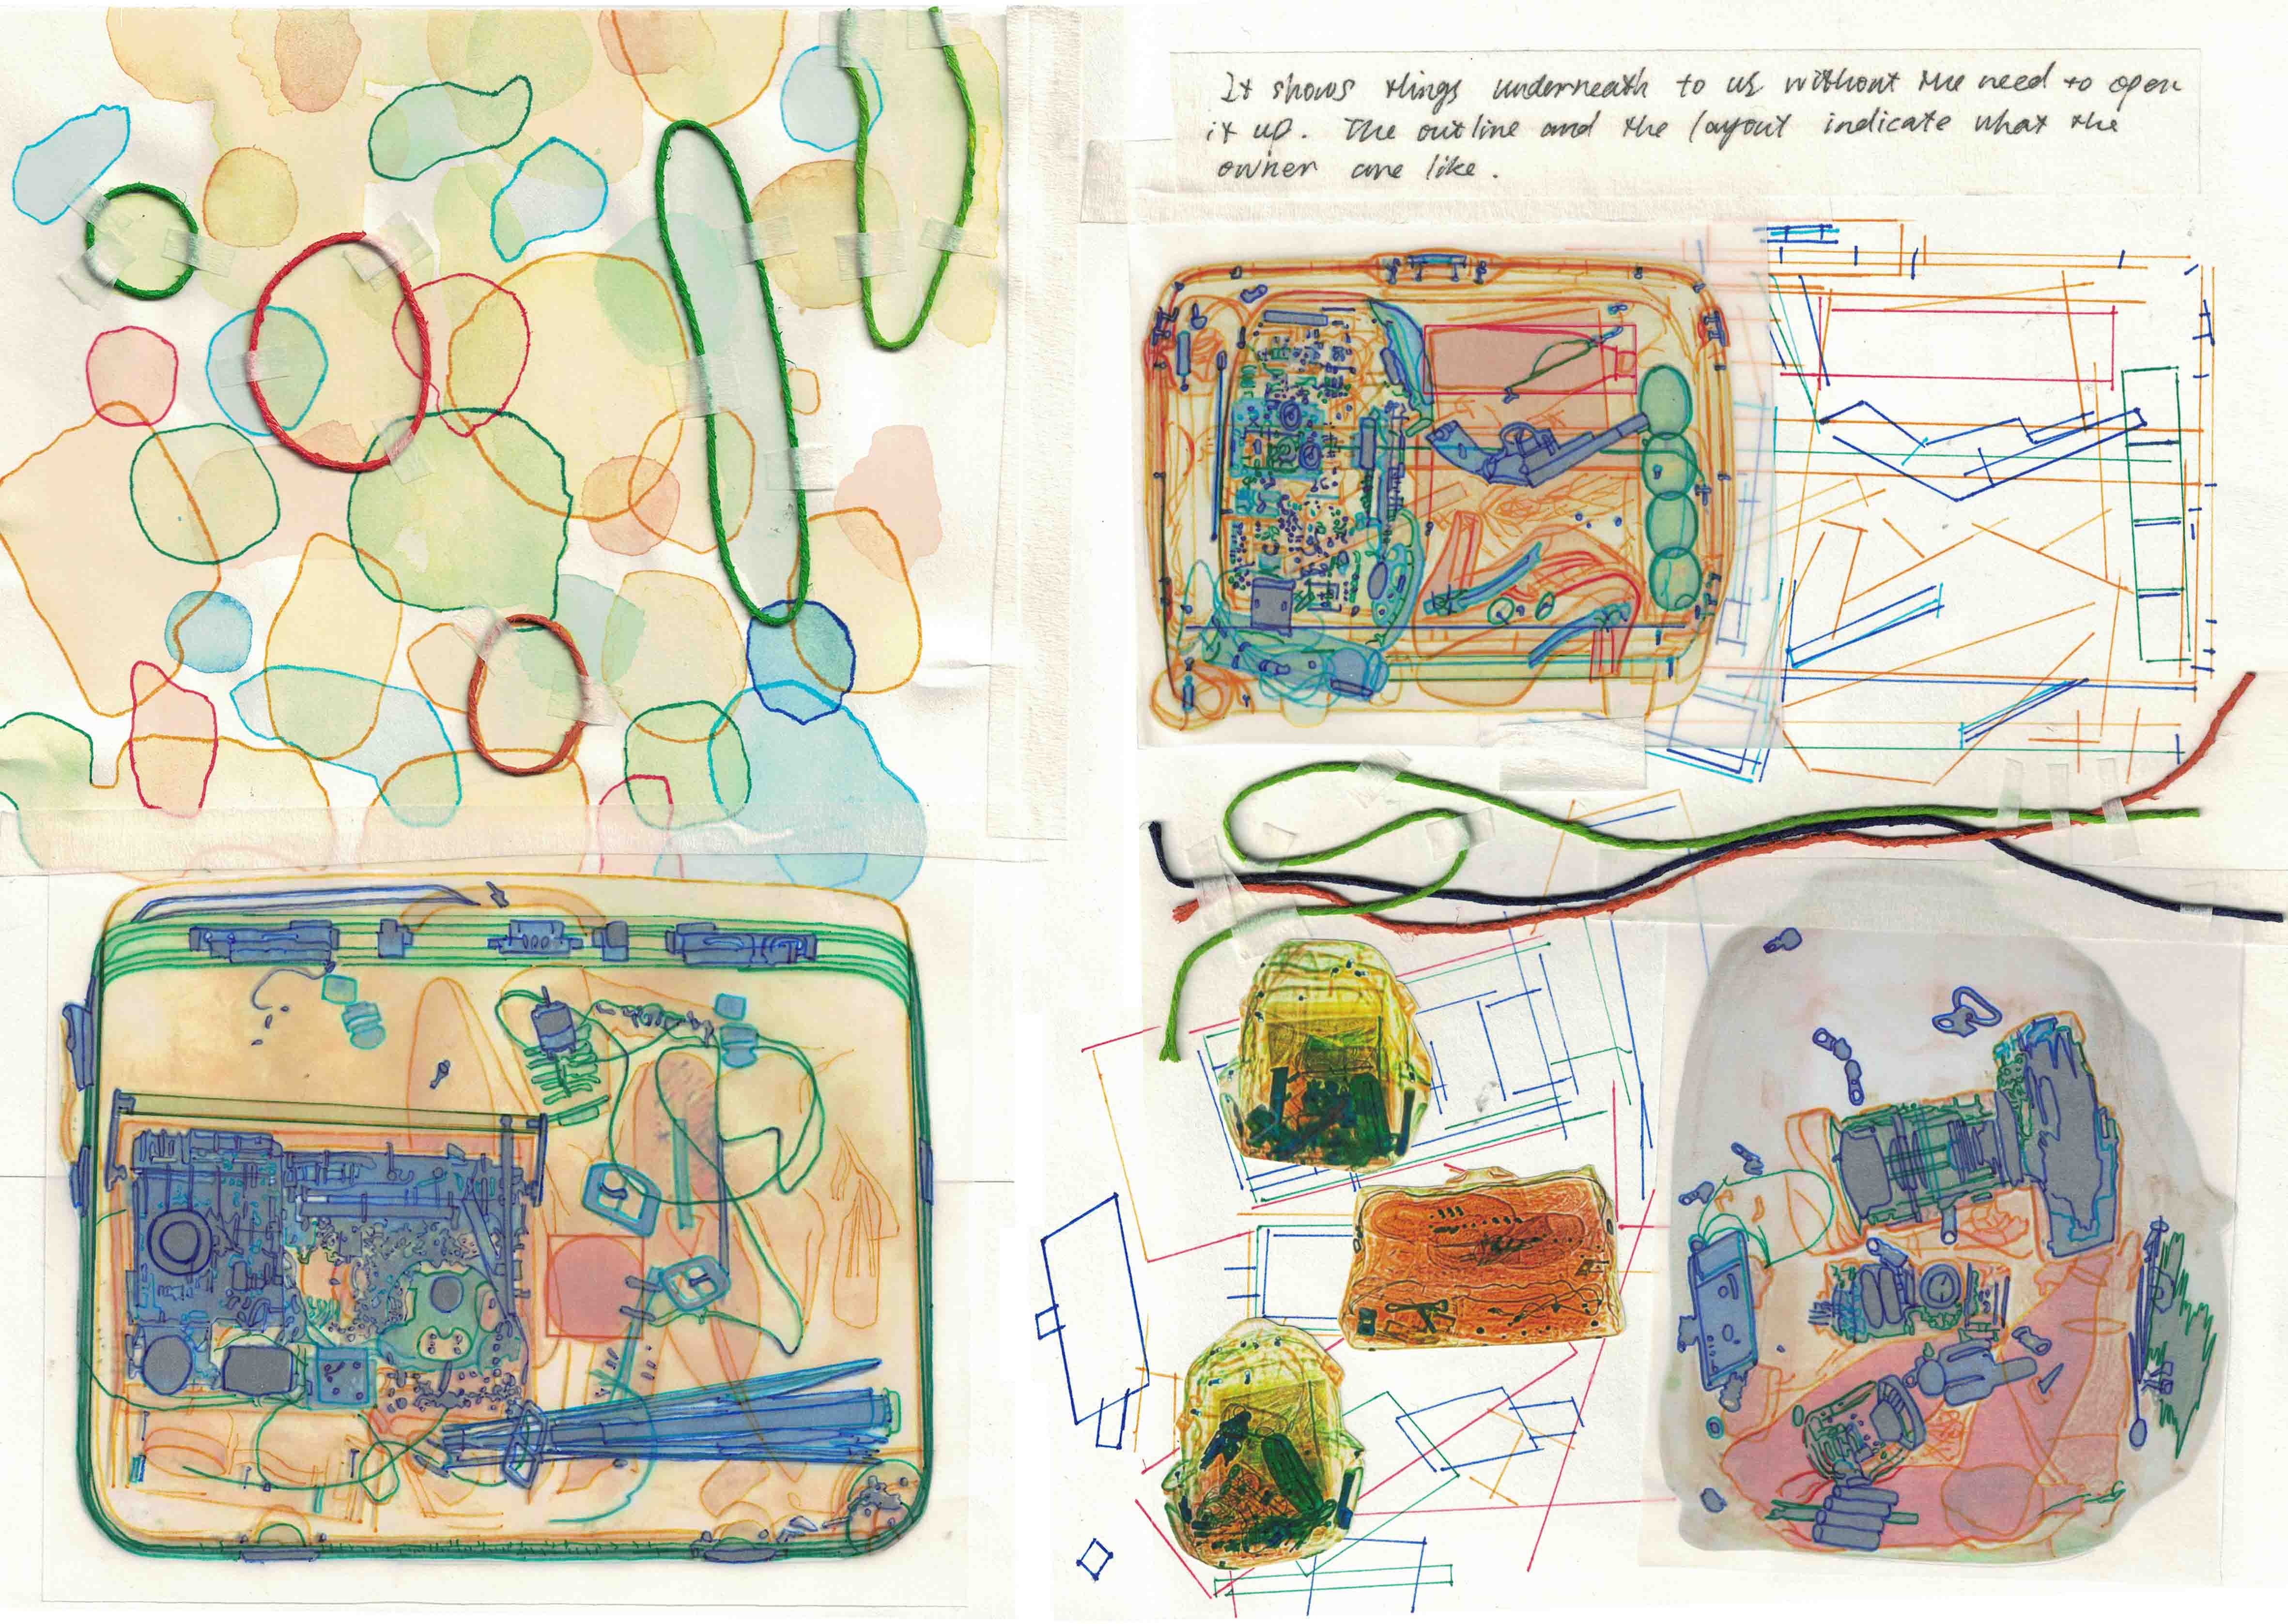 It shows things underneath to us without the need to open
it up. The outline and the layout indicate what the
owner are like.